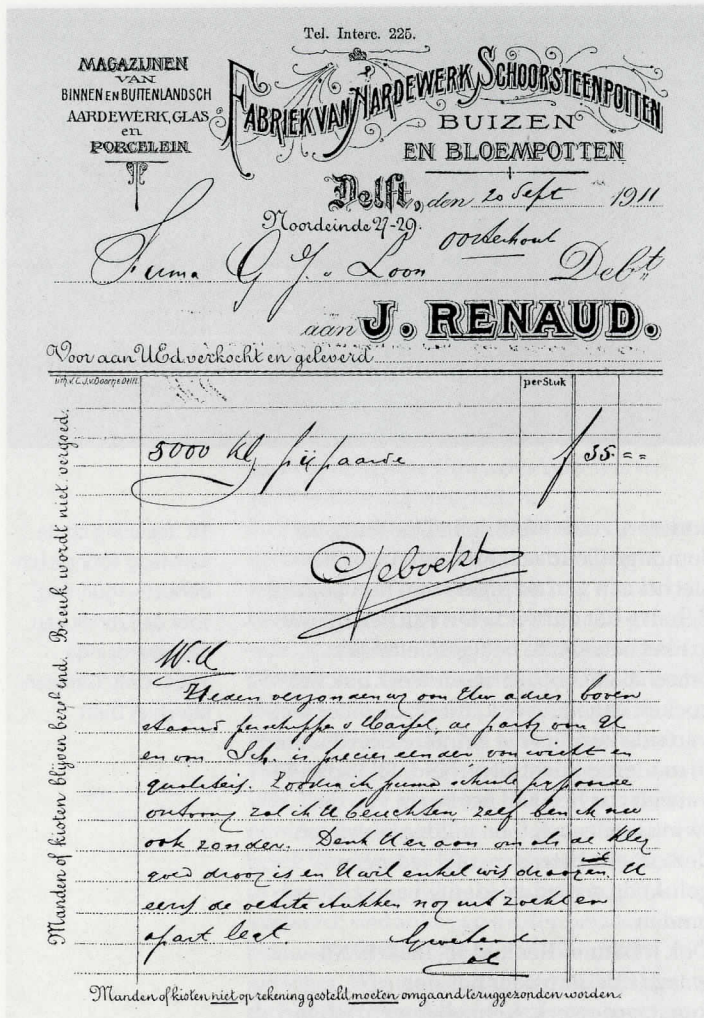 Tel. Interc. 225.
MAGAZIJNEN
VAN
BINNEN EN BUITENLANDSCH
AARDEWERK, GLAS
en
PORCELEIN
FABRIEK VAN AARDEWERK, SCHOORSTEENPOTTEN
BUIZEN
EN BLOEMPOTTEN
Delft, den 20 Sept 1911
Noordeinde 27-29.
Firma G J v Loon Oosterhout Debt
aan J. RENAUD.
Voor aan UEd verkocht en geleverd
Lith. v. C. J. v. Doorne Delft.
per Stuk
5000 Kg pijpaarde f 35 = =
Geboekt
W.H.
Heden verzonden wij om Uw adres boven
staand per schipper v , de partij van U
en van Sch. is precies eender, van wicht en
qualiteit. Zoodra ik puma pijpaarde
ontvang zal ik U berichten, zelf ben ik nu
ook zonder. Denk U er aan om als de Kleij
goed droog is en U wil enkel wit draaijen U
eerst de stukken nog uit zoekt en
apart legt.
Manden of kisten blijven berekend. Breuk wordt niet vergoed.
Manden of kisten niet op rekening gesteld moeten omgaand teruggezonden worden.